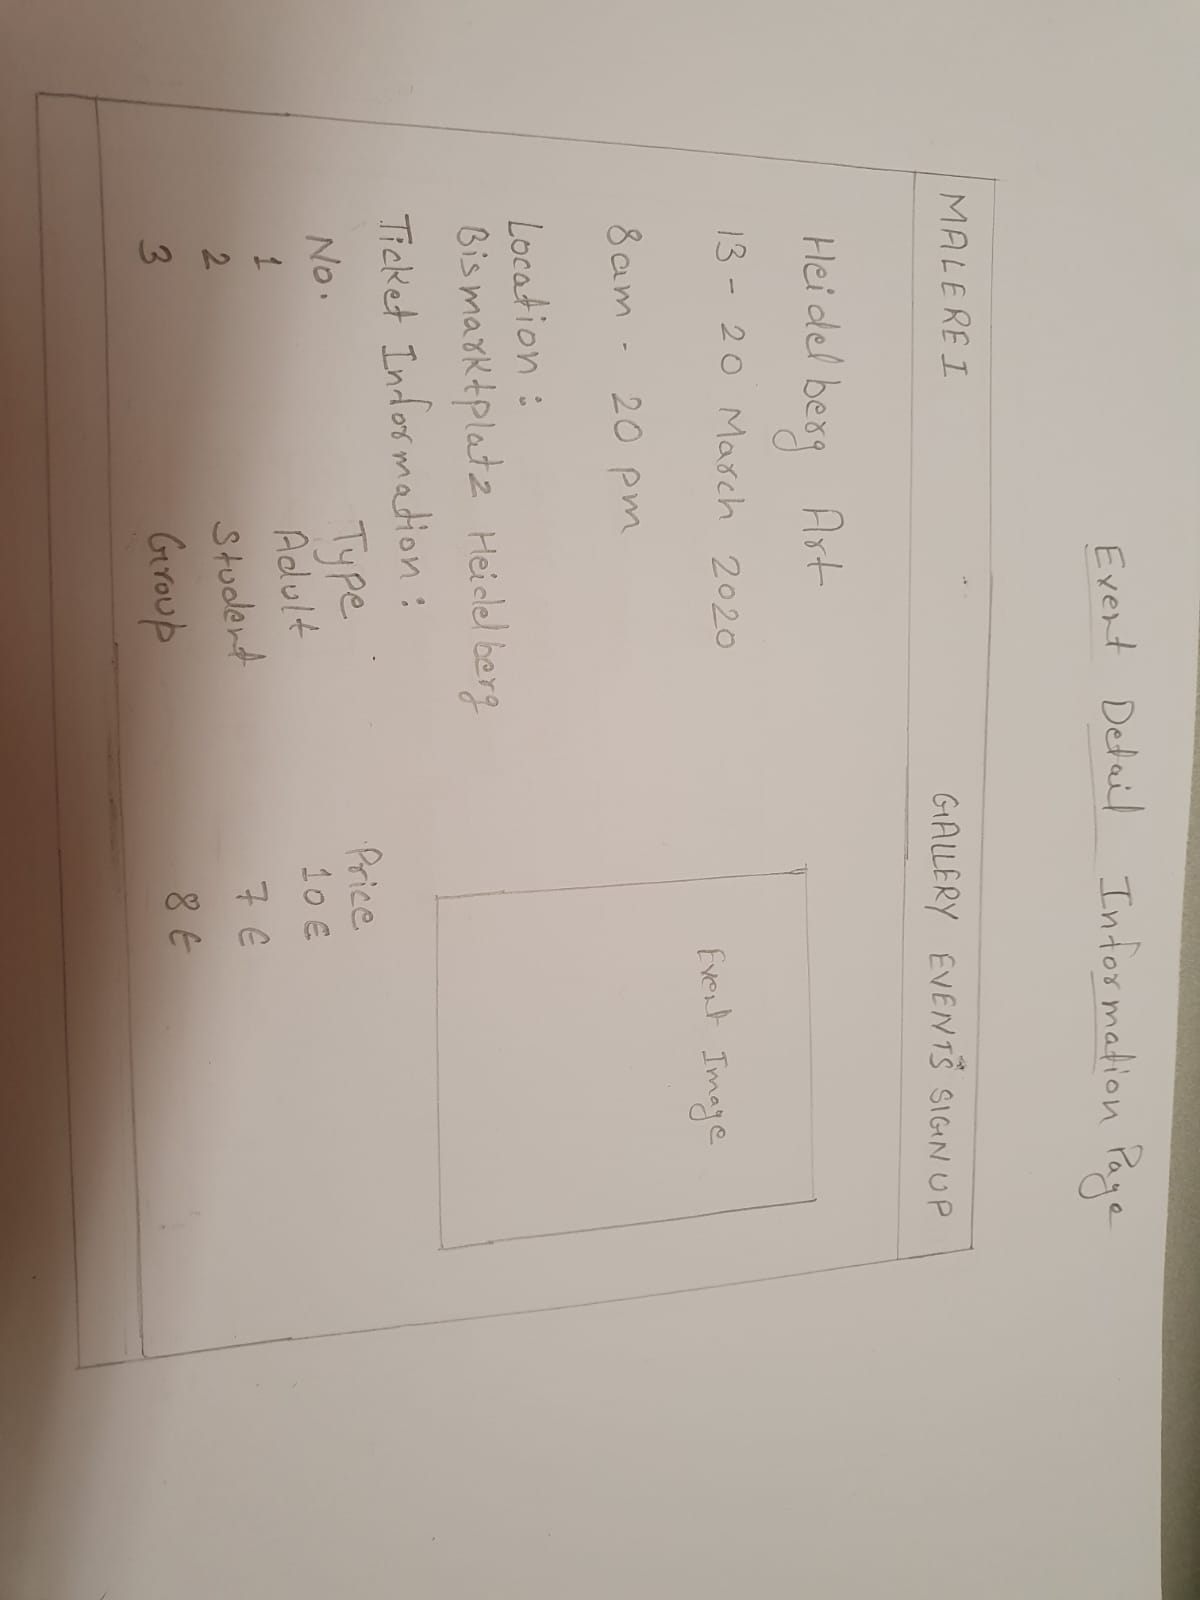 Event Detail Information Page
MALEREI GALLERY EVENTS SIGNUP
Heidelberg Art
13 - 20 March 2020
8am - 20 pm
Event Image
Location :
Bismarktplatz Heidelberg
Ticket Information :
No. Type Price
1 Adult 10€
2 Student 7€
3 Group 8€